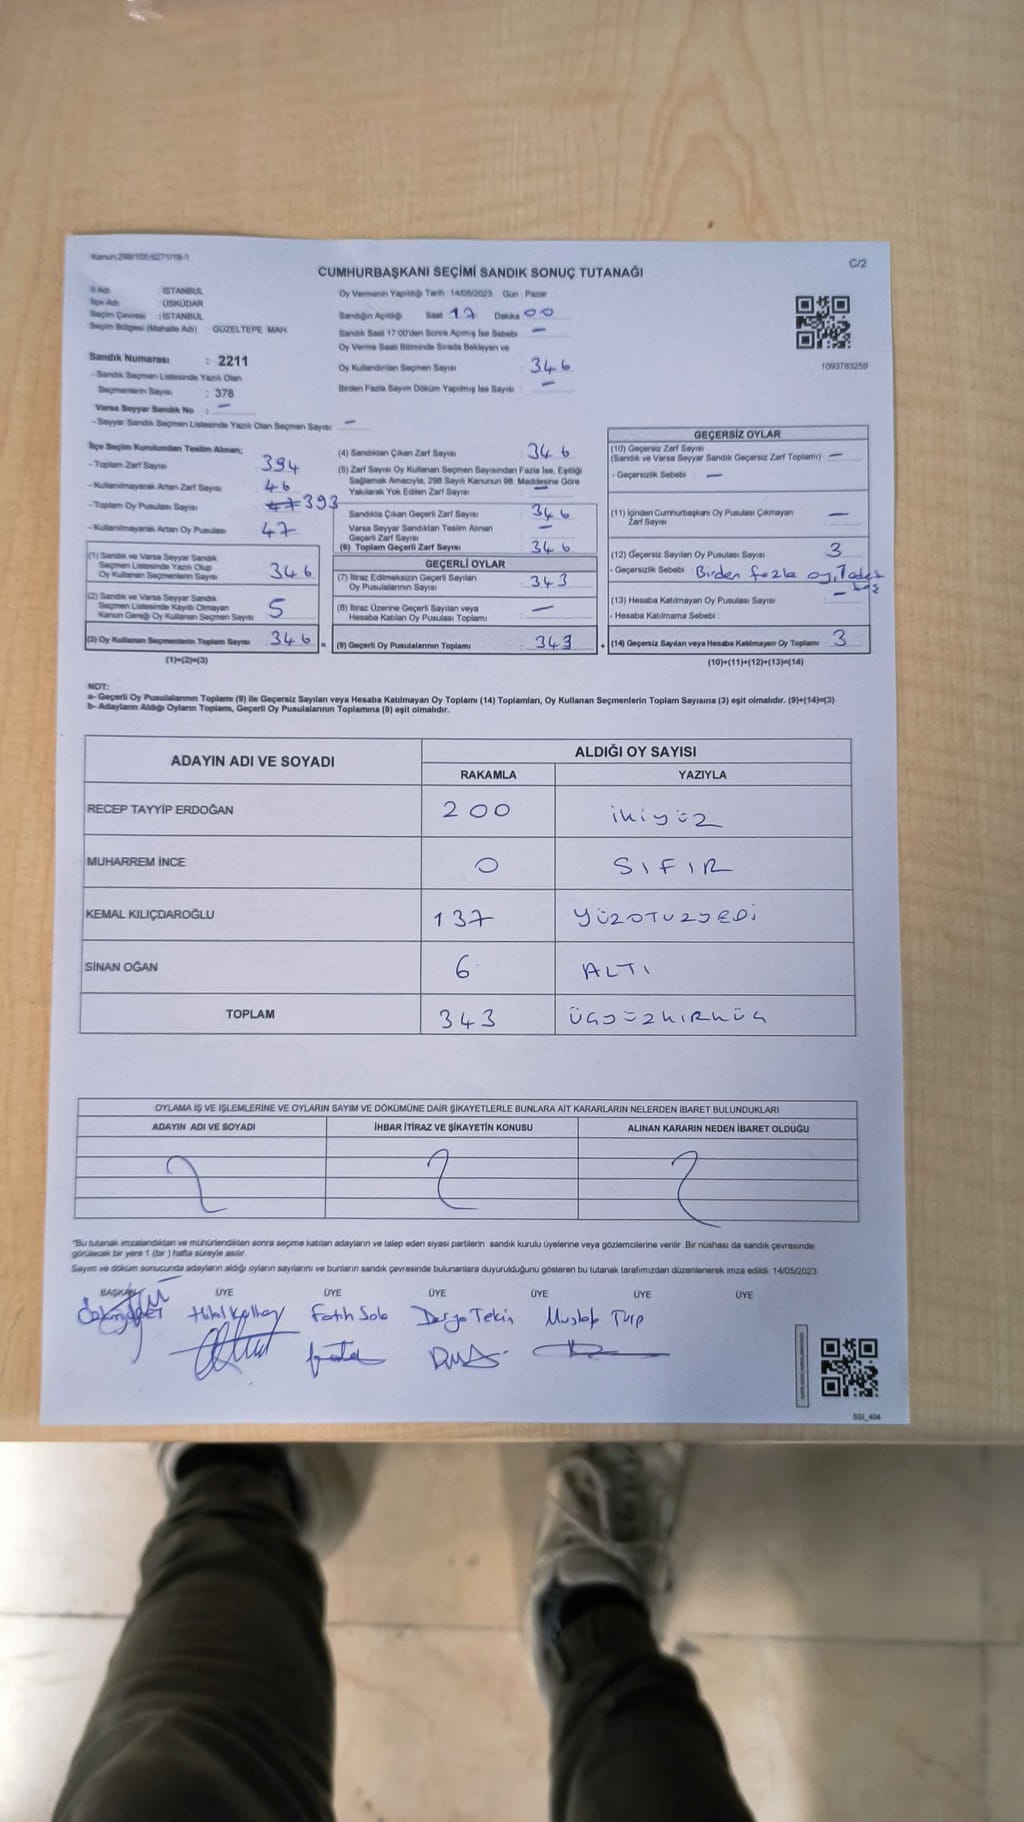 Kanun:298/105/6271/18-1
C/2
CUMHURBAŞKANI SEÇİMİ SANDIK SONUÇ TUTANAĞI
İl Adı : İSTANBUL
İlçe Adı : ÜSKÜDAR
Seçim Çevresi : İSTANBUL
Seçim Bölgesi (Mahalle Adı) : GÜZELTEPE MAH.
Sandık Numarası : 2211
- Sandık Seçmen Listesinde Yazılı Olan
Seçmenlerin Sayısı : 378
Varsa Seyyar Sandık No : -
- Seyyar Sandık Seçmen Listesinde Yazılı Olan Seçmen Sayısı: -
Oy Vermenin Yapıldığı Tarih :14/05/2023 Gün : Pazar
Sandığın Açıldığı Saat 17 Dakika 00
Sandık Saat 17:00'den Sonra Açılmış İse Sebebi : -
Oy Verme Saati Bitiminde Sırada Bekleyen ve
Oy Kullandırılan Seçmen Sayısı : 346
Birden Fazla Sayım Döküm Yapılmış İse Sayısı : -
1093783259
İlçe Seçim Kurulundan Teslim Alınan;
- Toplam Zarf Sayısı 394
- Kullanılmayarak Artan Zarf Sayısı 46
- Toplam Oy Pusulası Sayısı 393
- Kullanılmayarak Artan Oy Pusulası 47
(1) Sandık ve Varsa Seyyar Sandık
Seçmen Listesinde Yazılı Olup
Oy Kullanan Seçmenlerin Sayısı 346
(2) Sandık ve Varsa Seyyar Sandık
Seçmen Listesinde Kayıtlı Olmayan
Kanun Gereği Oy Kullanan Seçmen Sayısı 5
(3) Oy Kullanan Seçmenlerin Toplam Sayısı 346 =
(1)+(2)=(3)
(4) Sandıktan Çıkan Zarf Sayısı : 346
(5) Zarf Sayısı Oy Kullanan Seçmen Sayısından Fazla İse, Eşitliği
Sağlamak Amacıyla, 298 Sayılı Kanunun 98. Maddesine Göre
Yakılarak Yok Edilen Zarf Sayısı : -
Sandıkta Çıkan Geçerli Zarf Sayısı : 346
Varsa Seyyar Sandıktan Teslim Alınan
Geçerli Zarf Sayısı : -
(6) Toplam Geçerli Zarf Sayısı : 346
GEÇERLİ OYLAR
(7) İtiraz Edilmeksizin Geçerli Sayılan
Oy Pusulalarının Sayısı : 343
(8) İtiraz Üzerine Geçerli Sayılan veya
Hesaba Katılan Oy Pusulası Toplamı : -
(9) Geçerli Oy Pusulalarının Toplamı : 343 +
GEÇERSİZ OYLAR
(10) Geçersiz Zarf Sayısı
(Sandık ve Varsa Seyyar Sandık Geçersiz Zarf Toplamı) : -
- Geçersizlik Sebebi : -
(11) İçinden Cumhurbaşkanı Oy Pusulası Çıkmayan
Zarf Sayısı : -
(12) Geçersiz Sayılan Oy Pusulası Sayısı 3
- Geçersizlik Sebebi : Birden fazla oy, 1 adet
boş
(13) Hesaba Katılmayan Oy Pusulası Sayısı : -
- Hesaba Katılmama Sebebi :
(14) Geçersiz Sayılan veya Hesaba Katılmayan Oy Toplamı : 3
(10)+(11)+(12)+(13)=(14)
NOT:
a- Geçerli Oy Pusulalarının Toplamı (9) ile Geçersiz Sayılan veya Hesaba Katılmayan Oy Toplamı (14) Toplamları, Oy Kullanan Seçmenlerin Toplam Sayısına (3) eşit olmalıdır. (9)+(14)=(3)
b- Adayların Aldığı Oyların Toplamı, Geçerli Oy Pusulalarının Toplamına (9) eşit olmalıdır.
ADAYIN ADI VE SOYADI
ALDIĞI OY SAYISI
RAKAMLA YAZIYLA
RECEP TAYYİP ERDOĞAN 200 ikiyüz
MUHARREM İNCE 0 SIFIR
KEMAL KILIÇDAROĞLU 137 YÜZOTUZYEDİ
SİNAN OĞAN 6 ALTI
TOPLAM 343 ÜÇYÜZKIRKÜÇ
OYLAMA İŞ VE İŞLEMLERİNE VE OYLARIN SAYIM VE DÖKÜMÜNE DAİR ŞİKAYETLERLE BUNLARA AİT KARARLARIN NELERDEN İBARET BULUNDUKLARI
ADAYIN ADI VE SOYADI İHBAR İTİRAZ VE ŞİKAYETİN KONUSU ALINAN KARARIN NEDEN İBARET OLDUĞU
"Bu tutanak imzalandıktan ve mühürlendikten sonra seçime katılan adayların ve talep eden siyasi partilerin sandık kurulu üyelerine veya gözlemcilerine verilir. Bir nüshası da sandık çevresinde
görülecek bir yere 1 (bir ) hafta süreyle asılır.
Sayım ve döküm sonucunda adayların aldığı oyların sayılarını ve bunların sandık çevresinde bulunanlara duyurulduğunu gösteren bu tutanak tarafımızdan düzenlenerek imza edildi. 14/05/2023
BAŞKAN ÜYE ÜYE ÜYE ÜYE ÜYE ÜYE
Fatih Derya Tekin
SSI_404